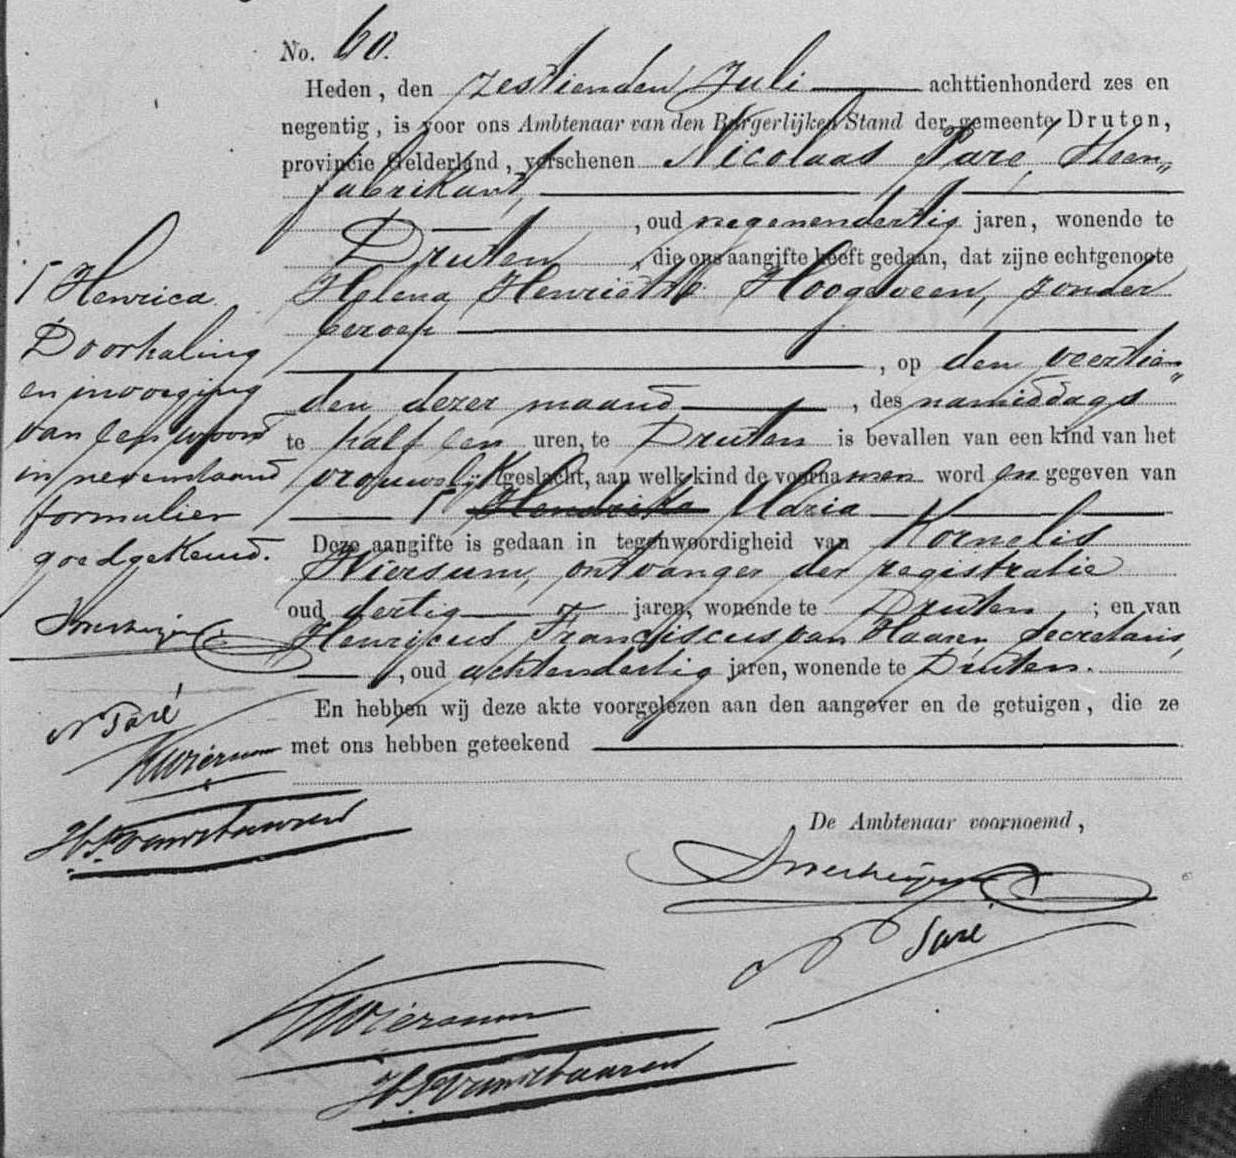 No. 60.
Heden, den zestienden Juli achttienhonderd zes en
negentig, is voor ons Ambtenaar van den Burgerlijken Stand der gemeente Druten,
provincie Gelderland, verschenen Nicolaas Paré, Steen„
fabrikant,
, oud negenendertig jaren, wonende te
Druten, die ons aangifte heeft gedaan, dat zijne echtgenoote
Helena Henriette Hoogeveen, zonder
beroep
, op den veertien„
den dezer maand, des namiddags
te half een uren, te Druten is bevallen van een kind van het
vrouwelijk geslacht, aan welk kind de voornamen worden gegeven van
Γ Hendrika Maria
Deze aangifte is gedaan in tegenwoordigheid van Kornelis
Wiersum, ontvanger der registratie
oud dertig jaren, wonende te Druten; en van
Henricus Franciscus van Haaren, Secretaris,
, oud achtendertig jaren, wonende te Druten.
En hebben wij deze akte voorgelezen aan den aangever en de getuigen, die ze
met ons hebben geteekend
De Ambtenaar voornoemd,
N Paré
KWiersum
HFvanHaaren
Γ Henrica
Doorhaling
en invoeging
van een woord
in nevenstaand
formulier
goedgekeurd.
N Paré
KWiersum
HFvanHaaren